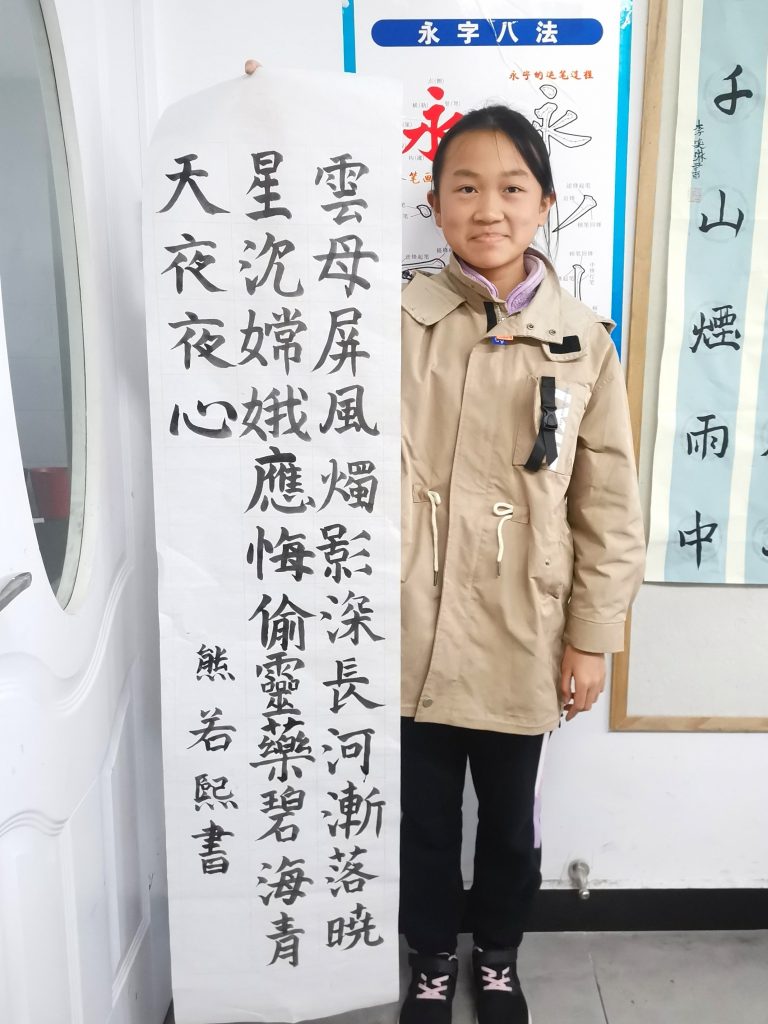 雲母屏風燭影深長河漸落曉
星沉嫦娥應悔偷靈藥碧海青
天夜夜心
熊若熙書
永字八法
永字的运笔过程
永
永
千山煙雨中